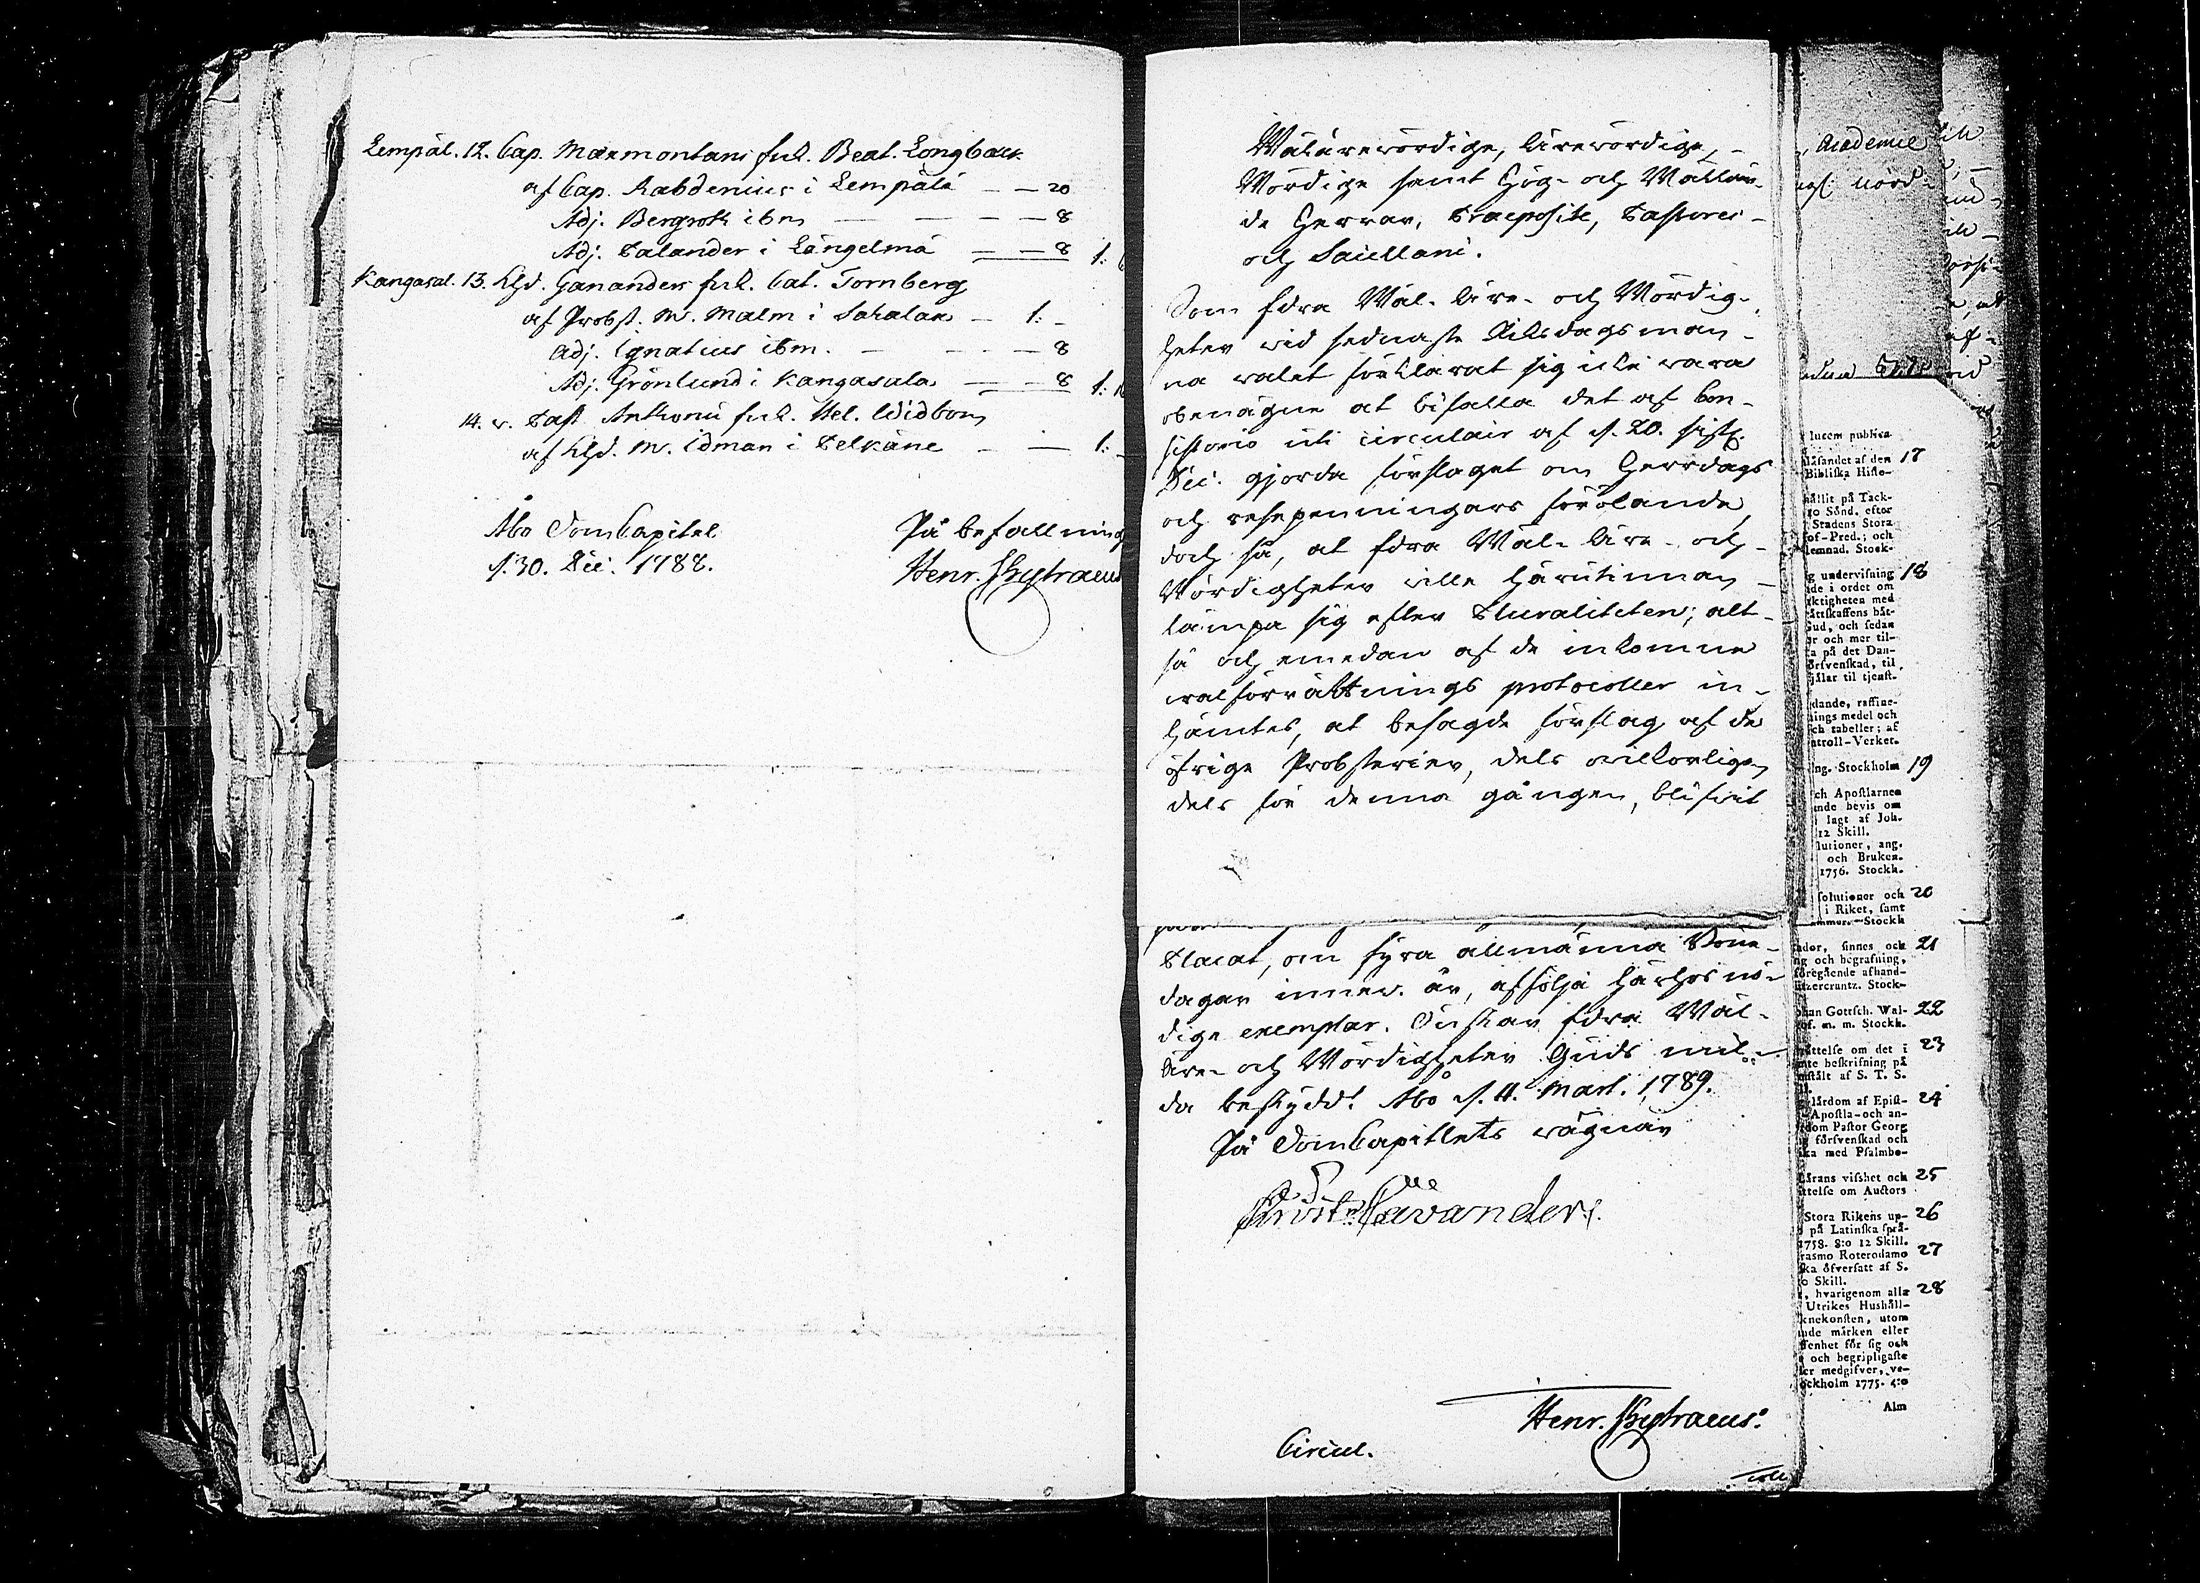 Lempäl. 12. Cap. Marmontani fuk. Beat. Longback
af Cap. Rabdenius i Lempälä — — 20
Adj. Bergroth ibm — — — — 8
Adj. Palander i Längelmä — — 8 1:
Kangasal. 13. Khd. Gananders fuk. Cat. Tornberg
af Probst. M. Malm i Sahalax — 1: –
Adj. Ignatius ibm. — — — 8
Adj. Grönlund i Kangasala — — 8 1:
14. v. Past Anthonii fuk. Hel. Widbom
af Khd. M. Idman i Pelkäne — — 1:
Åbo DomCapitel
d. 30. Dec. 1788.
På befallning
Henr. Chytraeus
Wälärewördige, Ärewördige,
Wördige samt Hög- och Wällär-
de Herrar, Praeposite, Pastores
och Sacellani.
Som Edra Wäl- Äre- och Wördig-
heter wid sednaste Riksdagsman-
na walet förklarat sig icke wara
obenägne at bifalla det af Con-
sistorio uti circulair af d. 20. sistl.
Dec. gjorda förslaget om Herrdags
och resepenningars förölande,
doch så, at Edra Wäl- Äre- och
Wördigheter wille härutinnan
lämpa sig efter Pluraliteten; alt-
så och emedan af de inkomne
walförrättnings protocoller in-
hämtes, at besagde förslag af de
öfrige Probsterier, dels wilkorligen
dels för denna gången, blifwit
Placat, om fyra allmänna Böne-
dagar innew. år, affölja härhos nö-
dige exemplar. Önskar Edra Wäl-
Äre- och Wördigheter Guds mil-
da beskydd! Åbo d. 11. Mart. 1789.
På DomCapitlets wägnar
Christ. Cavander.
Henr. Chytraeus.
Circul.
Academie
lucem publica
låsandet af den 17
Bibliska Histo-
hållit på Tack-
Sönd. efter
Stadens Stora
of-Pred.; och
lemnad. Stock-
g undervisning 18
de i ordet om
iktigheten med
ättskaffens båt-
Gud, och sedan
r och mer til-
a på det Dan-
örsvenskad, til
själar til tjenst-
dande, raffine-
nings medel och
ch tabeller; af
ntroll-Verket.
ing. Stockholm 19
ch Apostlarnes
nde bevis om
lagt af Joh.
12 Skill.
lutioner, ang.
och Bruken.
1756. Stockh.
solutioner och 20
i Riket, samt
Stockh
nder, sinnes och 21
ng och begrafning,
föregående afhand-
tzercrantz. Stock-
ohan Gottsch. Wal- 22
of. m. m. Stockh.
rättelse om det i 23
mte beskrifning på
nstålt af S. T. S.
lårdom af Epist- 24
Apostla-och an-
dom Pastor Georg
försvenskad och
ika med Psalmbo-
Lårans visshet och 25
ttelse om Auctors
Stora Rikens up- 26
på Latinska språ-
1758. 8:o 12 Skill.
rasmo Roterodamo 27
ka öfversatt af S.
o Skill.
, hvarigenom alla 28
Utrikes Hushåll-
knekonsten, utom
nde märken eller
ffenhet för sig och
och begripligaste
ler medgifver, ve-
ockholm 1775. 4:o
Alm